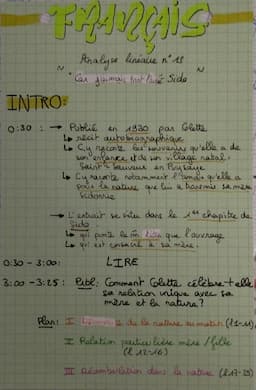 FRANÇAIS
Analyse linéaire n°18
"Car j'aimais tant l'aube" Sido
INTRO:
0:30 : → Publié en 1930 par Colette
↳ récit autobiographique
↳ C y raconte les souvenirs qu'elle a de
son enfance et de son village natal :
Saint Sauveur en Puysaye
↳ C y raconte notamment l'amour qu'elle a
pour la nature que lui a transmis sa mère
Sidonie
→ L'extrait se situe dans le 1er chapitre de
Sido
↳ qui porte le m titre que l'ouvrage
↳ qui est consacré à sa mère.
0:30 - 3:00: LIRE
3:00 - 3:25 : Pbl: Comment Colette célèbre-t-elle
sa relation unique avec sa
mère et la nature ?
Plan: I de la nature au matin (l1-11)
II Relation particulière mère / fille
(l 12-16)
III Déambulation dans la nature (l17-23)